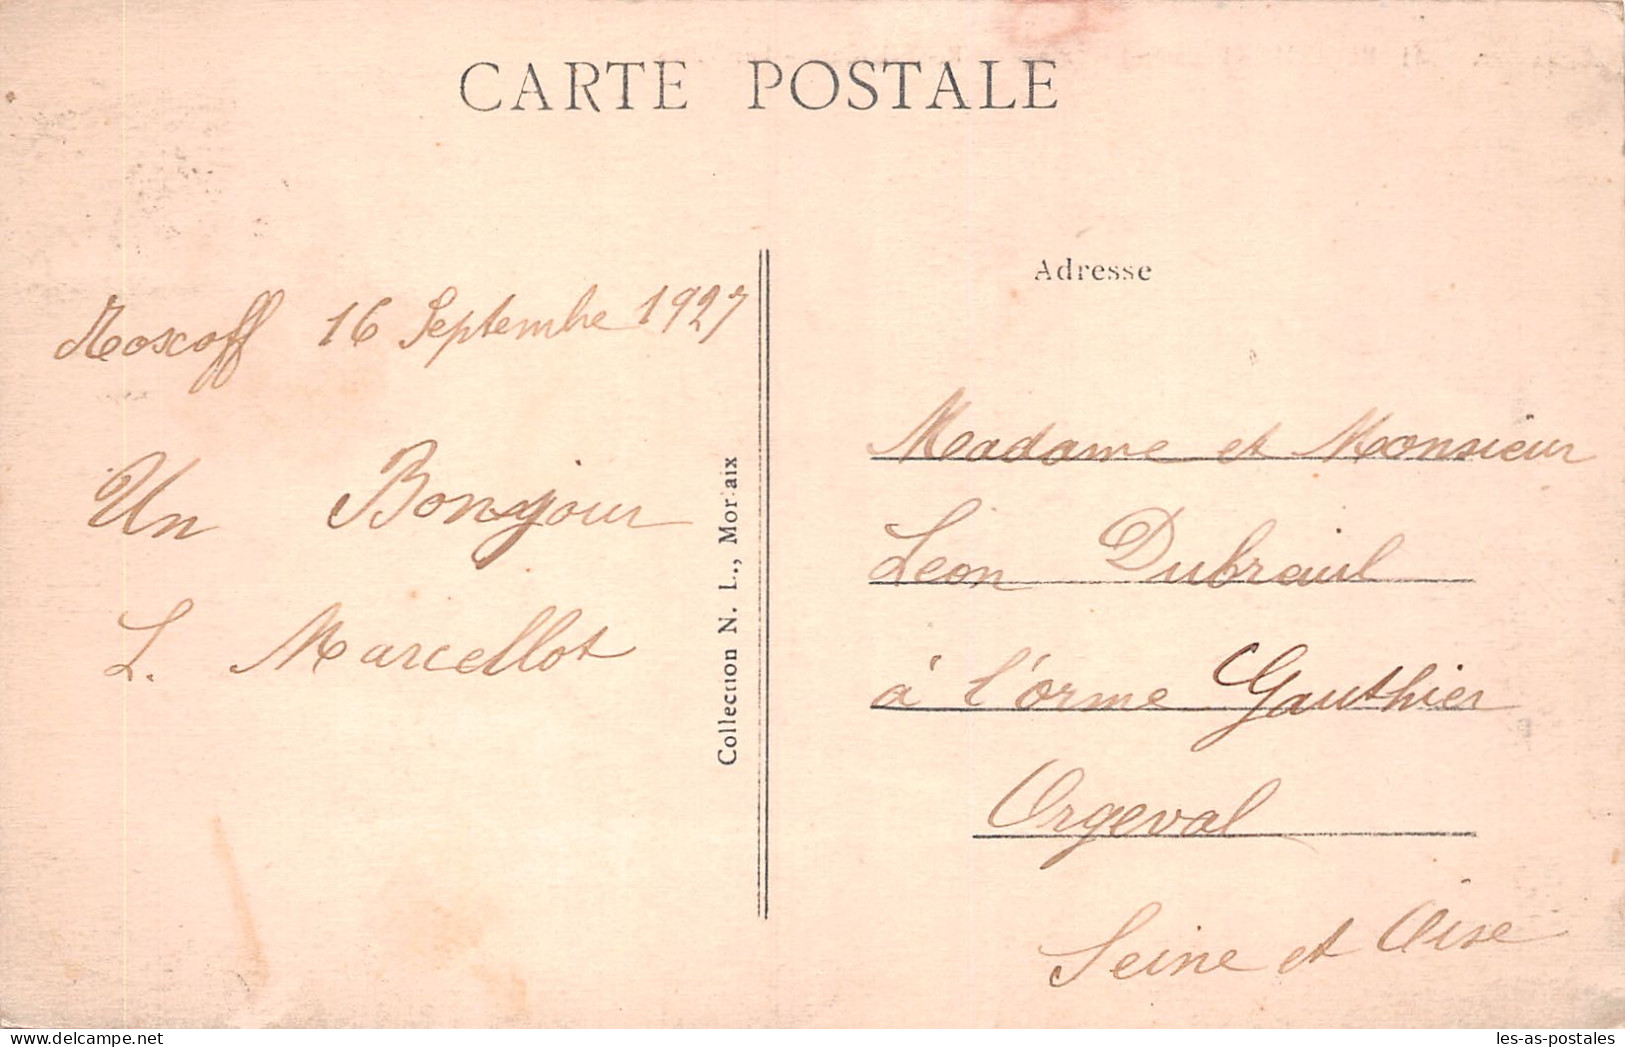 CARTE POSTALE
Roscoff 16 Septembre 1927
Un Bonjour
L. Marcellot
Collection N. L., Morlaix
Adresse
Madame et Monsieur
Leon Dubreuil
à l'orme Gauthier
Orgeval
Seine et Oise
delcampe.net
les-as-postales